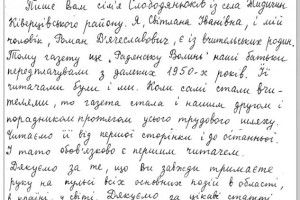 Пише вам сім'я Слободянюків із села Жидичин
Ківерцівського району. Я, Світлана Іванівна, і мій
чоловік, Роман В'ячеславович, є із вчительських родин.
Тому газету ще "Радянську Волинь" наші батьки
передплачували з далеких 1950-х років. Її
читачами були і ми. Коли самі стали вчи-
телями, то газета стала і нашим другом і
порадником протягом усього трудового шляху.
Читаємо її від першої сторінки і до останньої.
І тато обов'язково є першим читачем.
Дякуємо за те, що Ви завжди тримаєте
руку на пульсі всіх основних подій в області,
в країні, у світі. Дякуємо за цікаві статті